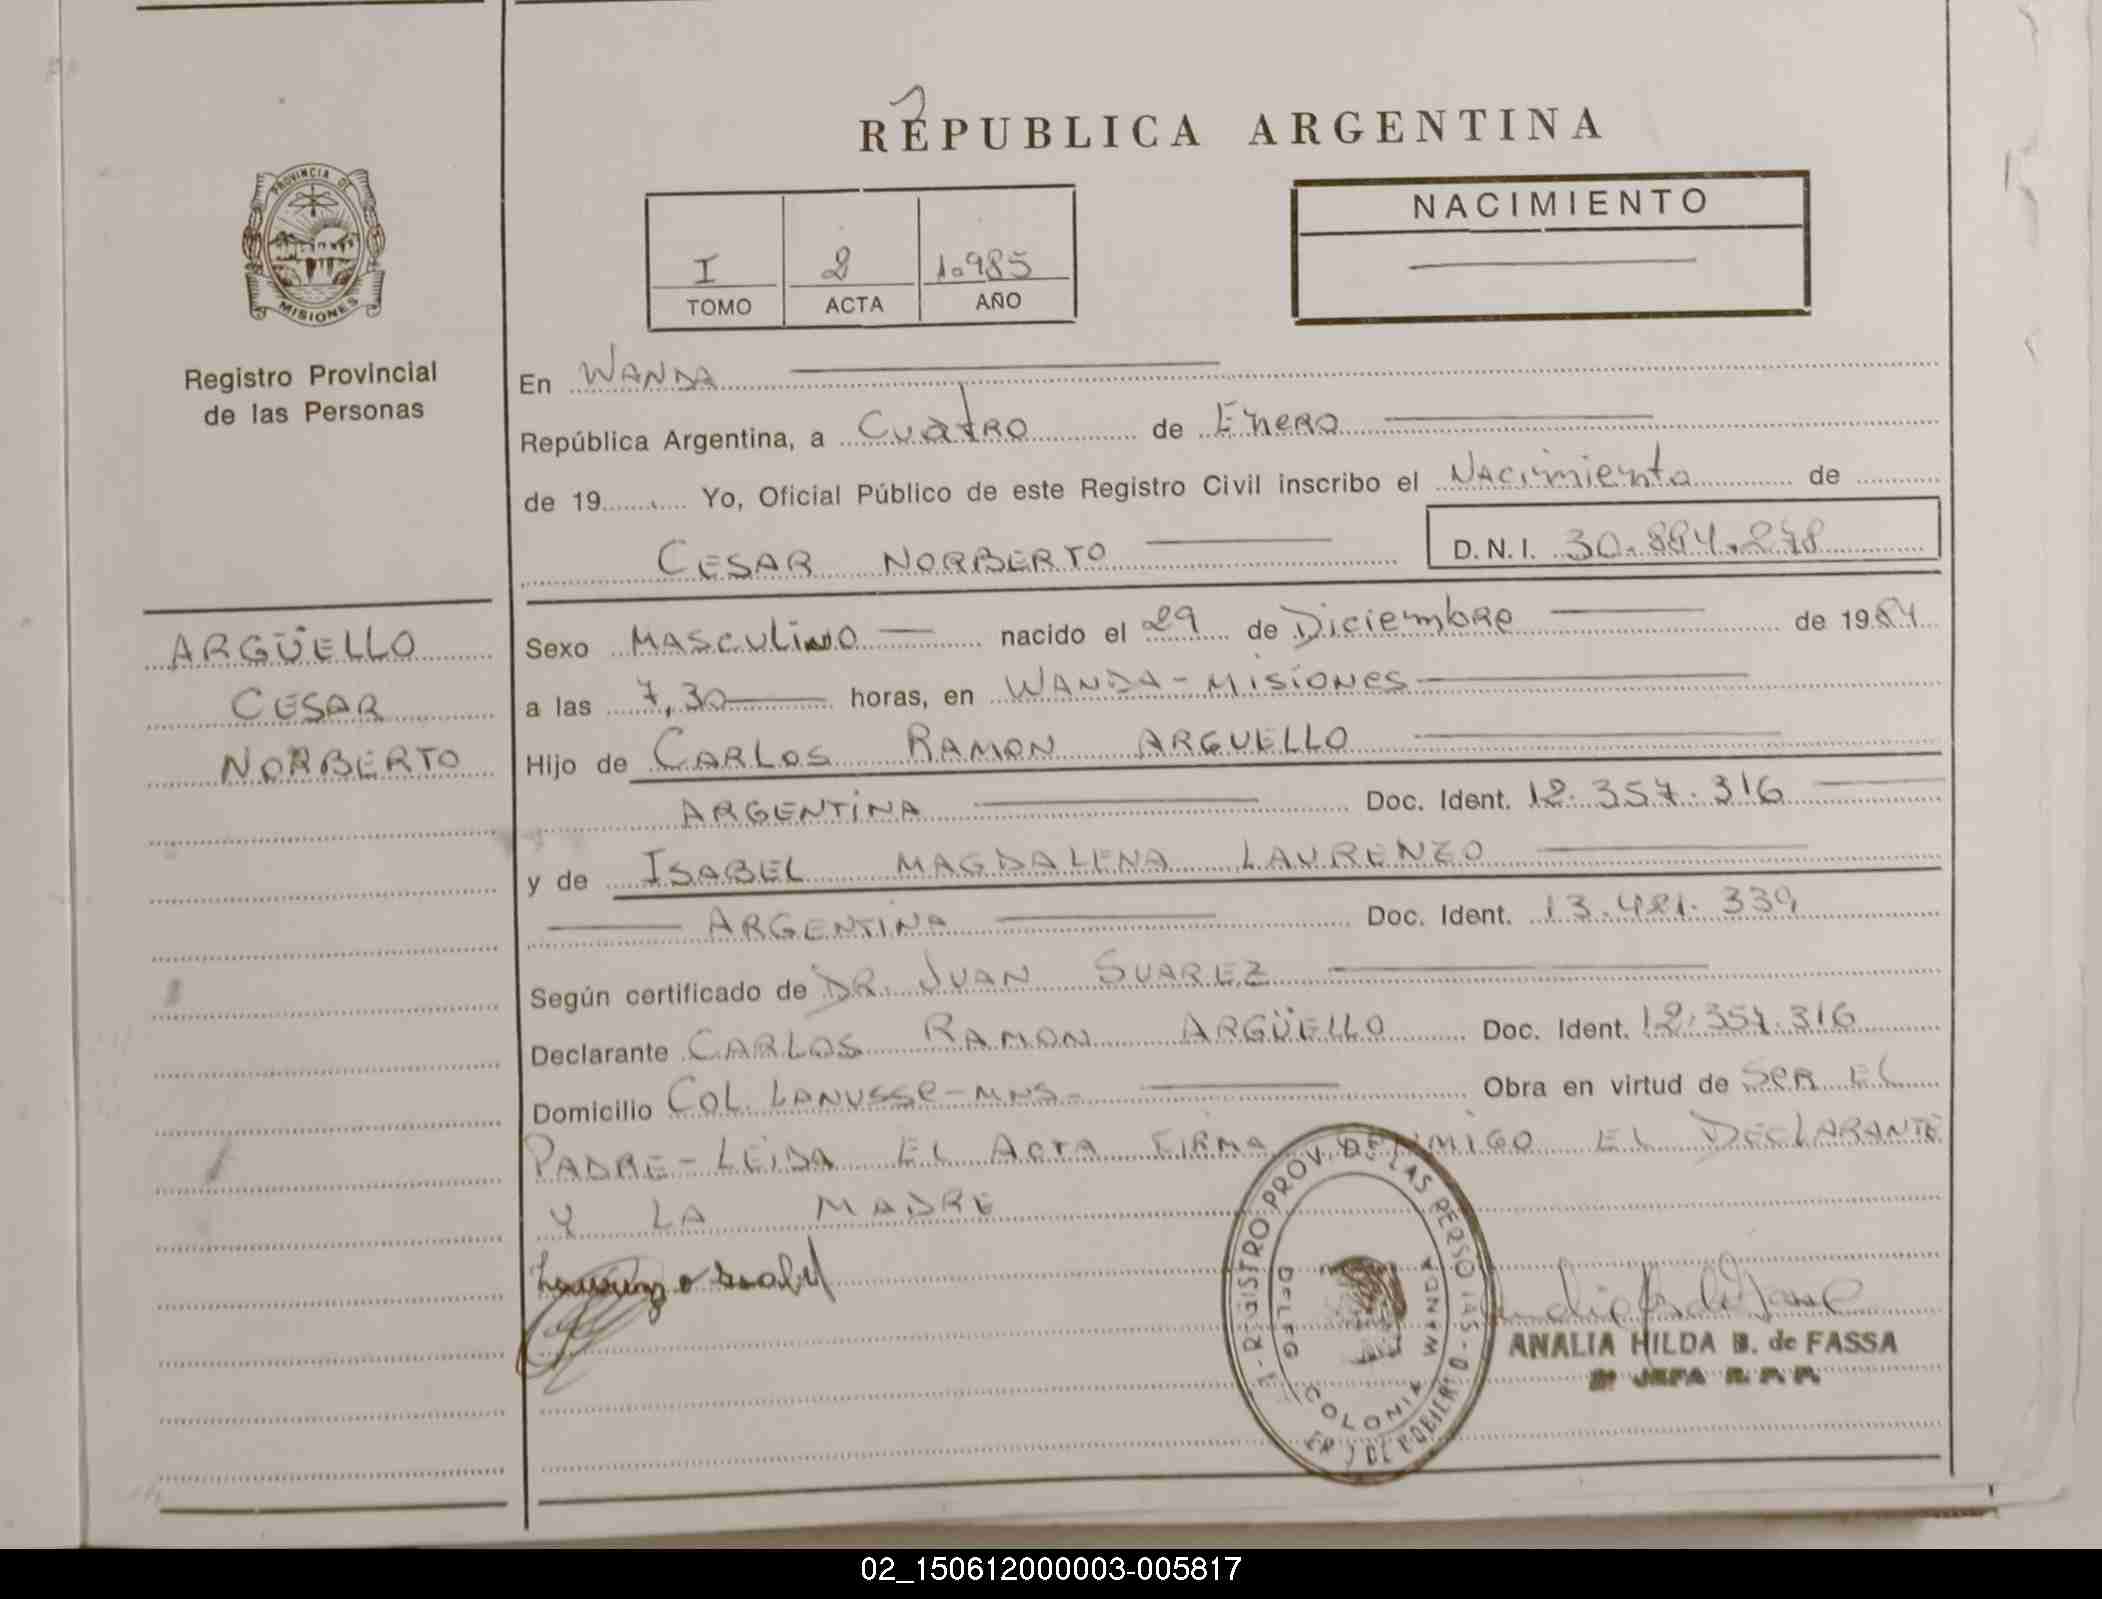 REPUBLICA ARGENTINA
PROVINCIA DE
MISIONES
Registro Provincial
de las Personas
I 2 1.985
TOMO ACTA AÑO
NACIMIENTO
En WANDA
República Argentina, a Cuatro de Enero
de 19 Yo, Oficial Público de este Registro Civil inscribo el Nacimiento de
CESAR NORBERTO D.N.I.
ARGÜELLO
CESAR
NORBERTO
Sexo MASCULINO nacido el 29 de Diciembre de 1984
a las 7,30 horas, en WANDA-MISIONES
Hijo de CARLOS RAMON ARGUELLO
ARGENTINA Doc. Ident. 12.357.316
y de ISABEL MAGDALENA LAURENZO
ARGENTINA Doc. Ident. 13.481.339
Según certificado de DR. JUAN SUAREZ
Declarante CARLOS RAMON ARGÜELLO Doc. Ident. 12.357.316
Domicilio COL. LANUSSE-MNS- Obra en virtud de SER EL
PADRE-LEIDA EL ACTA FIRMA EL DECLARANTE
Y LA MADRE
Laurenzo Isabel
REGISTRO PROV. DE LAS PERSO
DELEG
COLONIA
WANDA
ANALIA HILDA B. de FASSA
JEFA R. P. P.
02_150612000003-005817